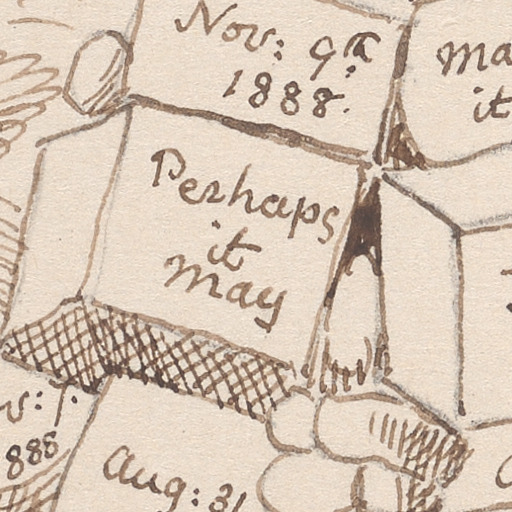 Nov: 9th
1888.
it
Perhaps
it
may
1888
Aug: 31